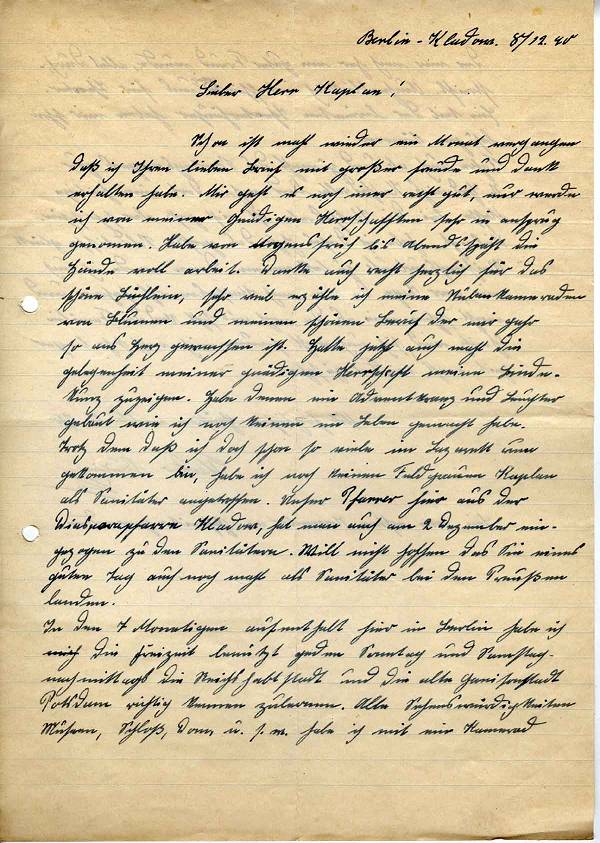 Berlin-Kladow. 8/12.40
Lieber Herr Kaplan!
Schon ist mahl wieder ein Monat vergangen
daß ich Ihren lieben Brief mit großer freude und dank
erhalten habe. Mir geht es noch imer recht gut, nur werde
ich von meiner Gnädigen Herrschafften sehr in ansprug
genomen. Habe von Morgensfrüh bis Abendsspäht die
Hände voll arbeit. Danke auch recht herzlich für das
schöne Büchlein, sehr viel erzähle ich meine Stubenkameraden
von Blumen und meinen schönen Beruf der mir sehr
so ans Herz gewachsen ist. Hatte jetzt auch mahl die
gelegenheit meiner gnädigen Herrschaft meine Binde-
kunz zuzeigen. Habe denen ein Adventkranz und Leuchter
gebaut wie ich noch keinen im Leben gemacht habe.
Trotz dem daß ich doch schon so viele im Lazarett rum
gekommen bin, habe ich noch keinen Feldgrauen Kaplan
als Sanitäter angetroffen. Unser Pfarrer hier aus der
Diasporapfarre Kladow, hat man auch am 2 Dezember ein-
gezogen zu den Sanitätern. Will nicht hoffen das Sie eines
guten Tag auch noch mahl als Sanitäter bei den Preußen
landen.
In den 7 Monatigen aufenthalt hier in Berlin habe ich
mich die Freizeit benützt jeden Sonntag und Samstag-
nachmittags die Reichshabtstadt und die alte Garnisonstadt
Potsdam richtig kennen zulernen. Alle Sehenswürdigkeiten
Müseen, Schloß, Dom, u. s. w. habe ich mit ein Kamerad